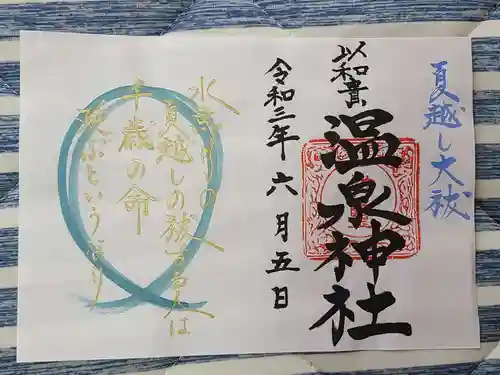 夏越し大祓
以和貴
温泉神社
令和三年六月五日
水無月の
夏越しの祓する人は
千歳の命
延ぶというなり